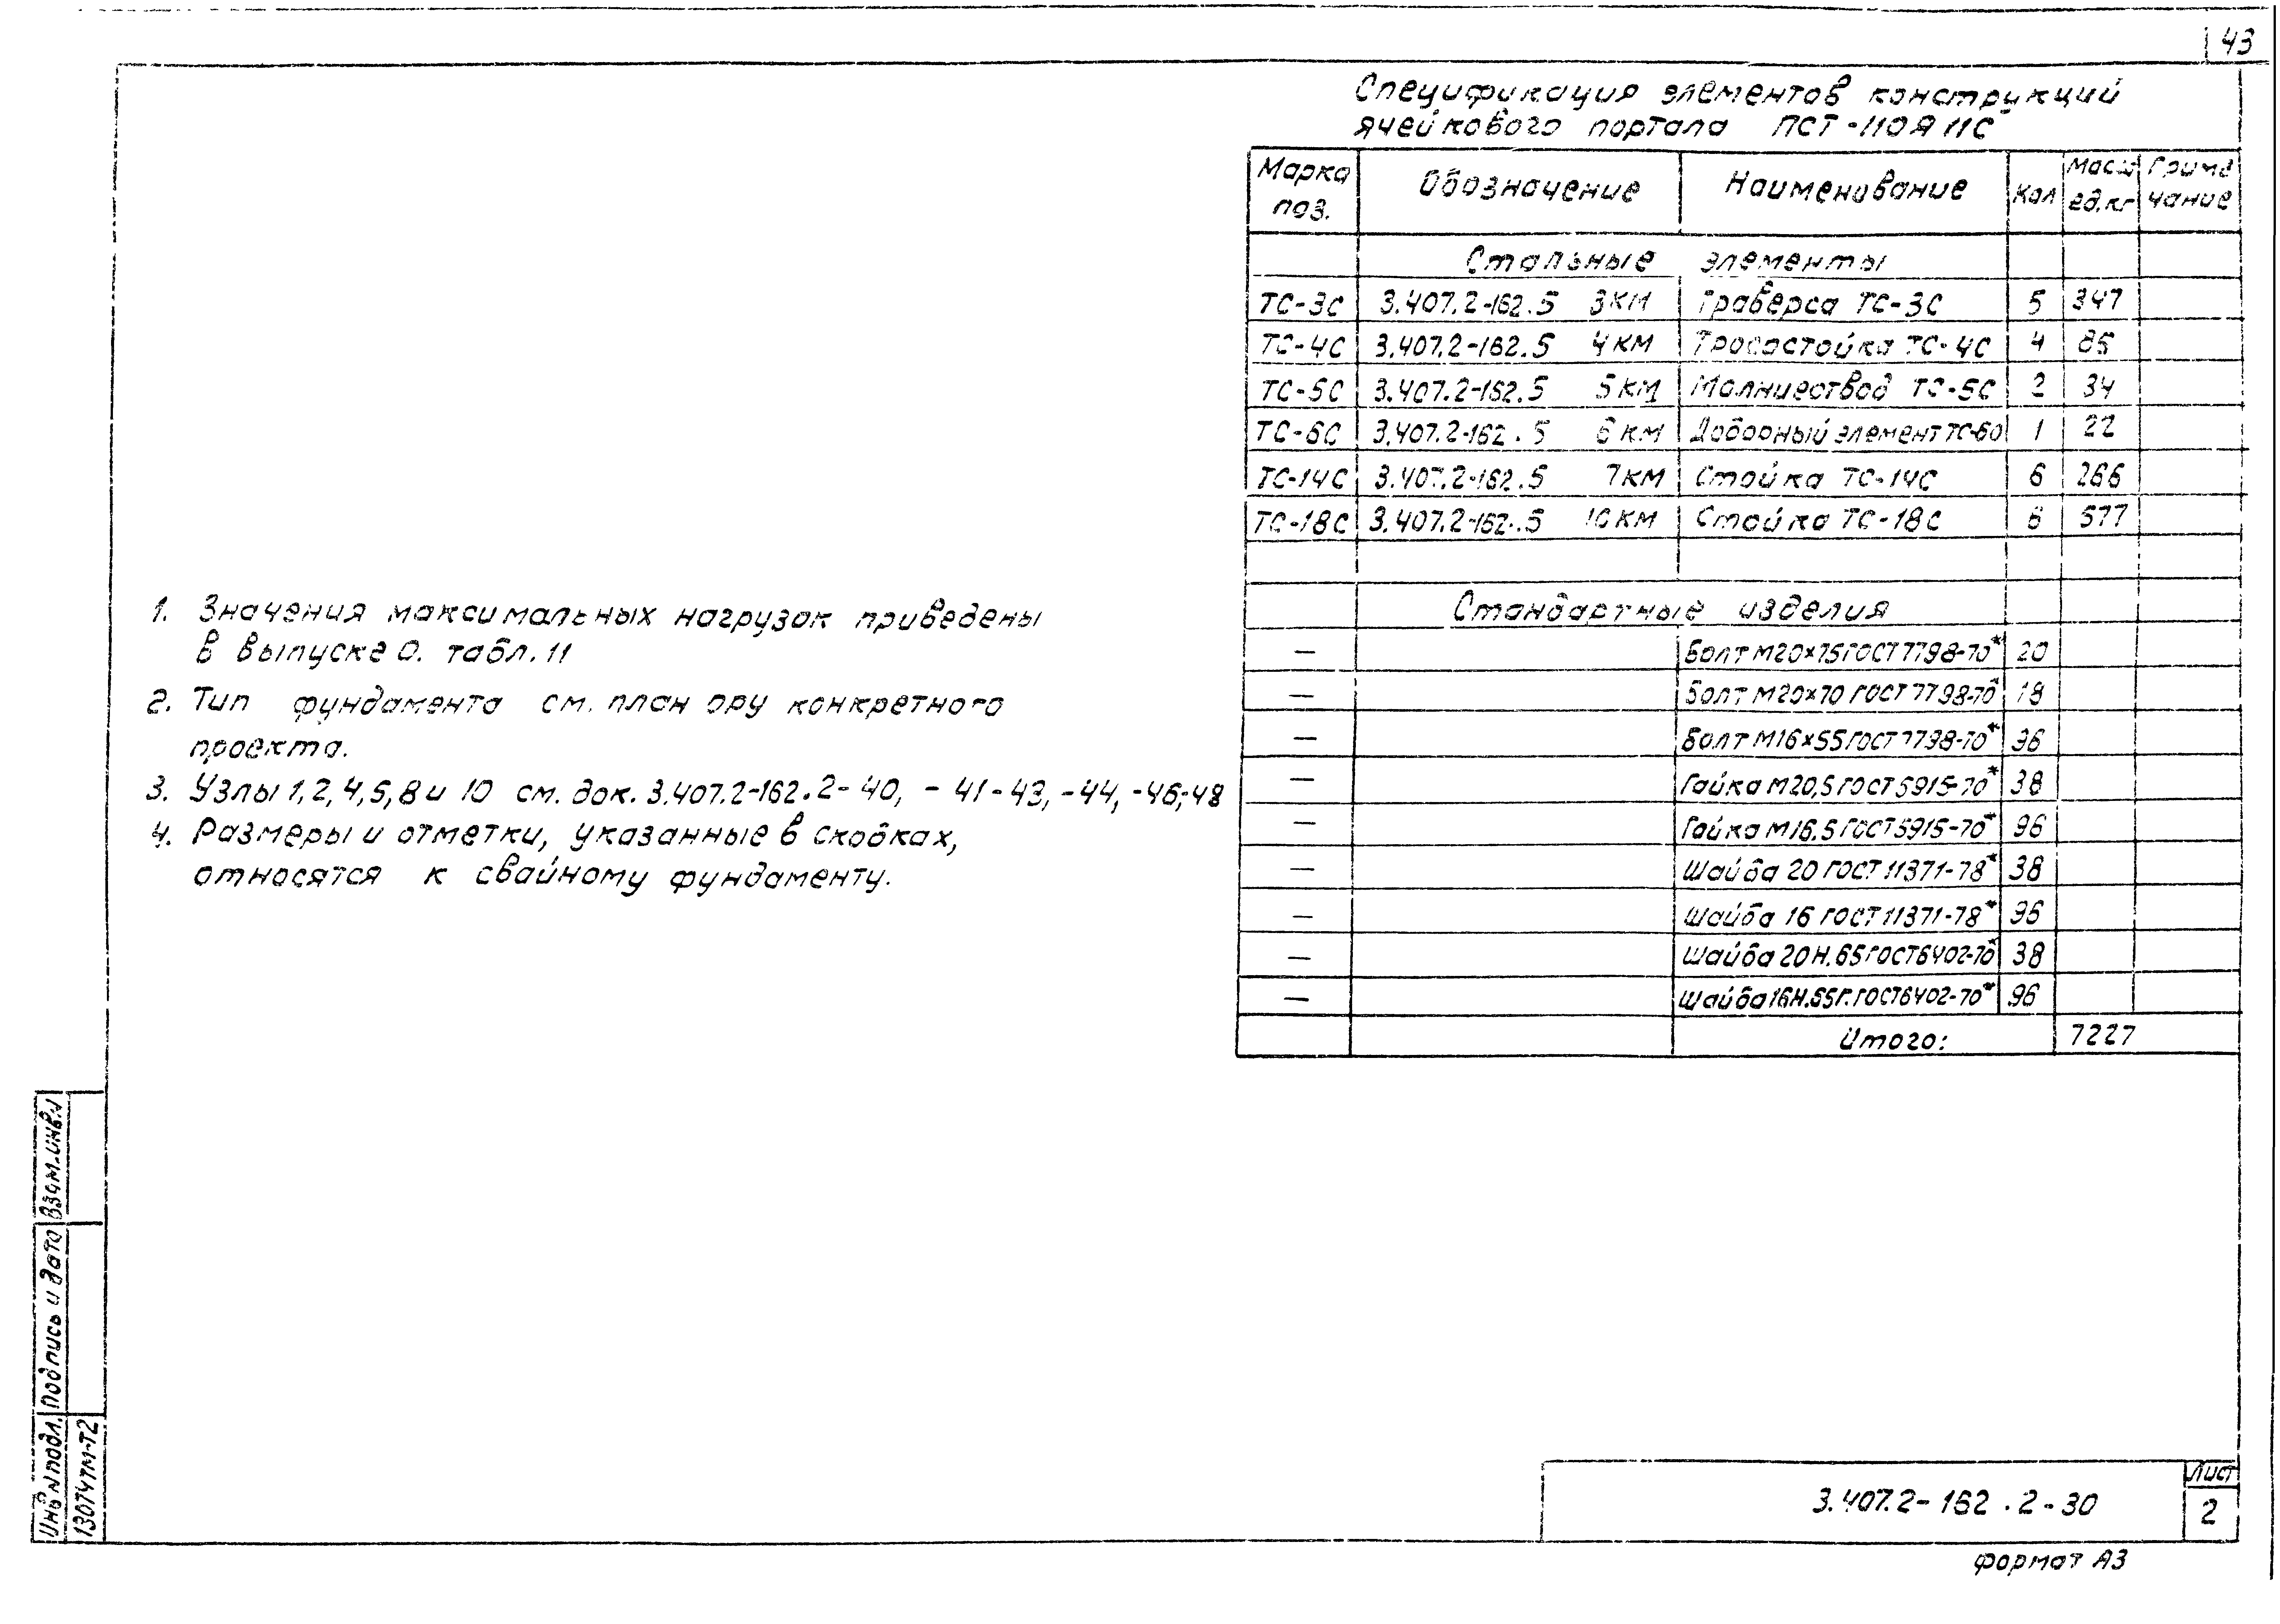 43
Спецификация элементов конструкций
ячейкового портала ПСТ-110Я11С
Марка поз. Обозначение Наименование Кол Масса ед.кг Примечание
Стальные элементы
ТС-3С 3.407.2-162.5 3КМ Траверса ТС-3С 5 347
ТС-4С 3.407.2-162.5 4КМ Тросостойка ТС-4С 4 85
ТС-5С 3.407.2-162.5 5КМ Молниеотвод ТС-5С 2 34
ТС-6С 3.407.2-162.5 6КМ Доборный элемент ТС-6С 1 22
ТС-14С 3.407.2-162.5 7КМ Стойка ТС-14С 6 266
ТС-18С 3.407.2-162.5 10КМ Стойка ТС-18С 6 577
Стандартные изделия
— Болт М20×75 ГОСТ 7798-70* 20
— Болт М20×70 ГОСТ 7798-70* 18
— Болт М16×55 ГОСТ 7798-70* 96
— Гайка М20,5 ГОСТ 5915-70* 38
— Гайка М16.5 ГОСТ 5915-70* 96
— Шайба 20 ГОСТ 11371-78* 38
— Шайба 16 ГОСТ 11371-78* 96
— Шайба 20Н.65Г ГОСТ 6402-70* 38
— Шайба 16Н.65Г. ГОСТ 6402-70* 96
Итого: 7227
1. Значения максимальных нагрузок приведены
в выпуске 0. табл. 11
2. Тип фундамента см. план ору конкретного
проекта.
3. Узлы 1,2,4,5,8 и 10 см. док. 3.407.2-162.2-40, -41-43, -44, -46,-48
4. Размеры и отметки, указанные в скобках,
относятся к свайному фундаменту.
Взам.инв.N
Подпись и дата
Инв N подл.
13074тм-Т2
3.407.2-162.2-30
Лист
2
формат А3